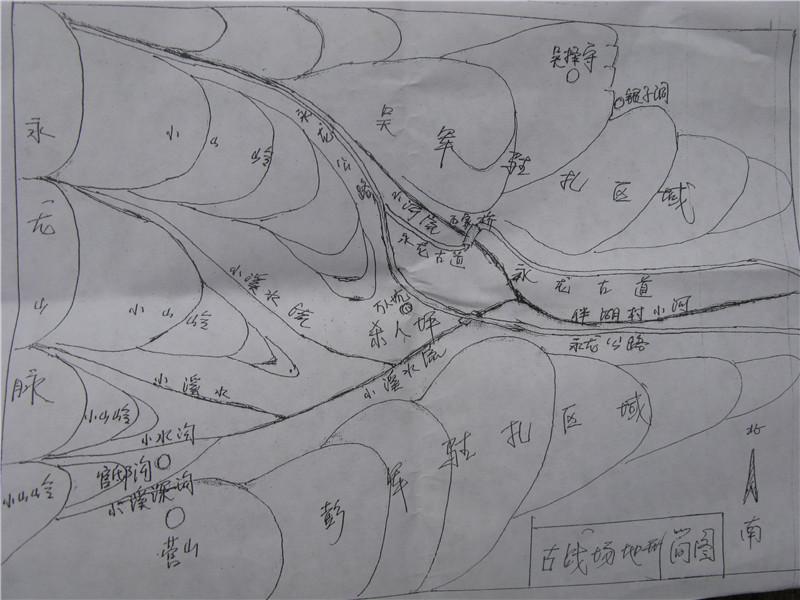 永龙山脉
小山岭
小山岭
小山岭
小山岭
永龙公路
吴军驻扎区域
小河流
永龙古道
永龙古道
伴湖村小河
永龙公路
小溪水流
万人坑
杀人坪
小溪水流
小溪水
小水沟
官邸沟
小溪深沟
营山
彭军驻扎区域
北
南
古战场地形简图